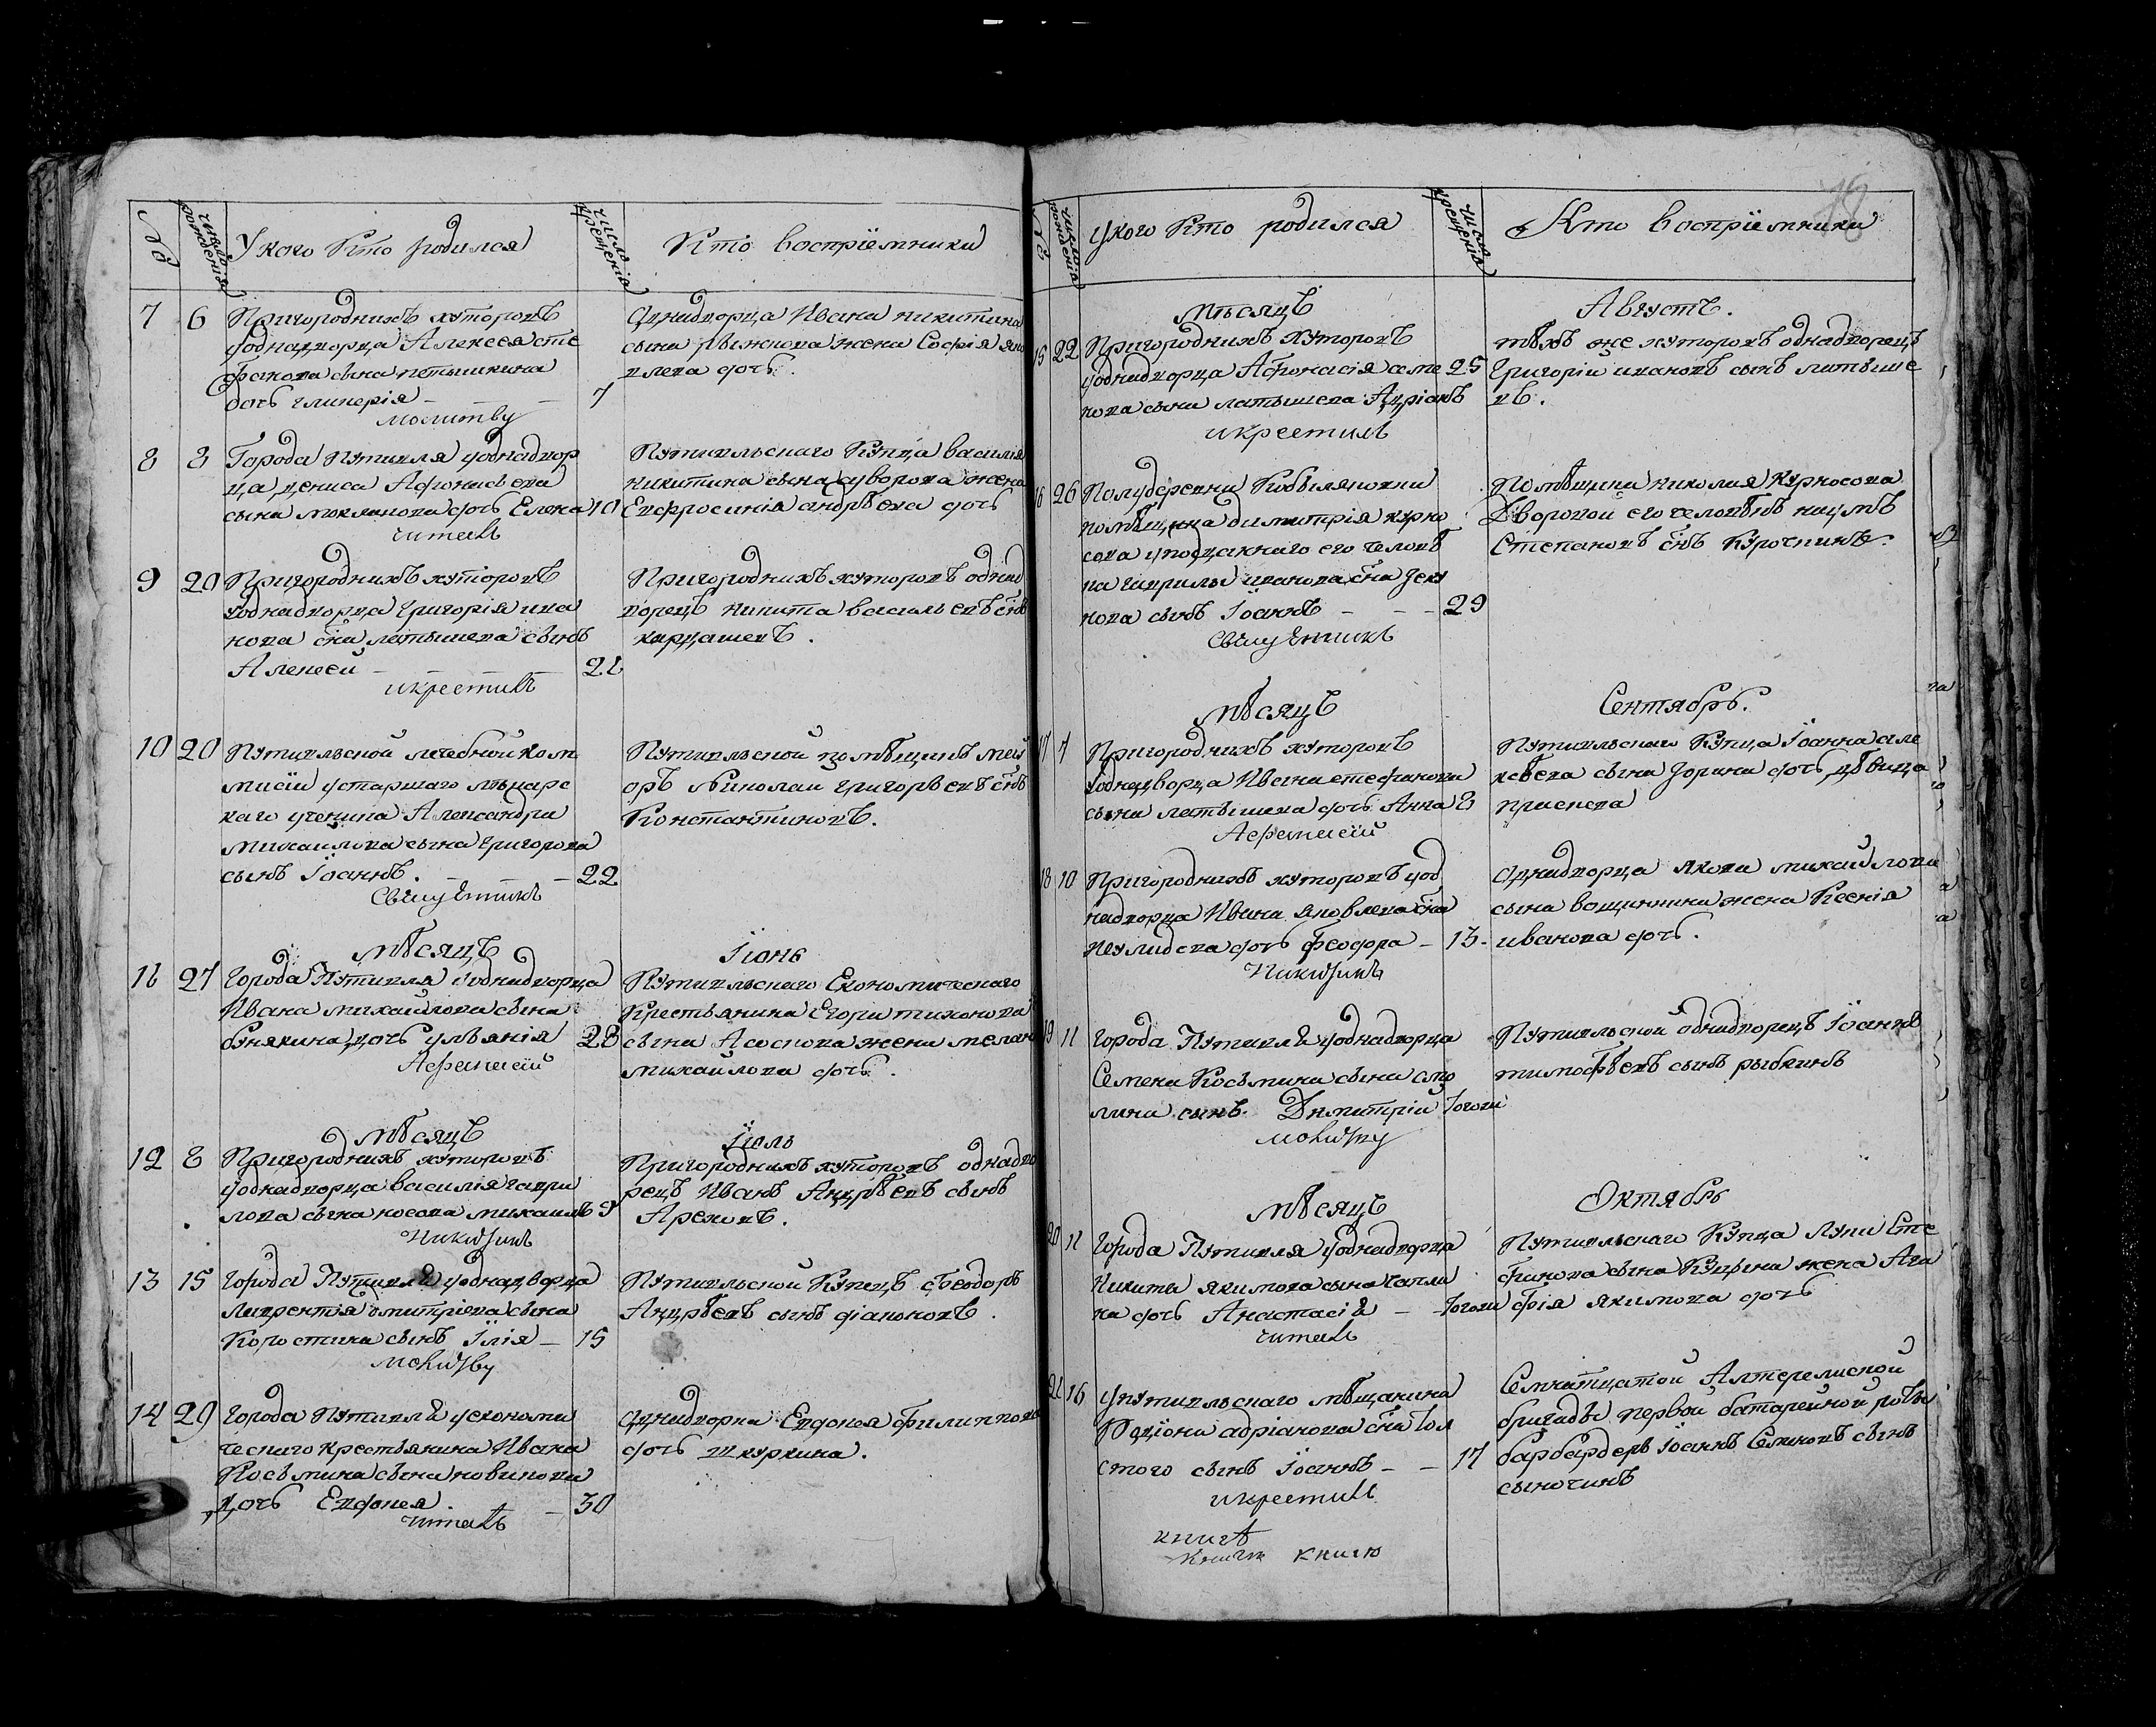 18
№
число рождения
У кого кто родился
число крещения
Кто восприемники
7 6 Пригороднихъ хуторовъ
уоднадворца Алексея сте
фанова сына петышкина
дочь гликерія - - - 7
молитву
Однадворца Ивана никитина
сына рыжкова жена Софія яко
влева дочь.
8 8 Города путивля уоднадвор
ца дениса Афонасьева
сына моклякова дочь Елена 10
читалъ
Путивльскаго купца василія
никитина сына суворова жена
Евфросинія андрѣева дочь
9 20 Пригороднихъ хуторовъ
уоднадворца григорія ива
нова сна латышева сынъ
Алексей - - - 21
икрестилъ
Пригороднихъ хуторовъ однад
ворецъ никита васильевъ снъ
кардашевъ.
10 20 Путивльской лечебной ком
мисіи устаршаго лѣкарс
каго ученика Александра
михаилова сына григорова
сынъ Іоаннъ. - - - 22
Священникъ
Путивльской помѣщикъ маи
оръ николаи григорьевъ снъ
Константиновъ.
мѣсяцъ Іюнь
11 27 Города Путивля уоднадворца
Ивана михайлова сына
бунякина дочь улъянія 28
Афанасій
Путивльскаго Економическаго
Крестьянина Егора тихонова
сына Асоскова жена мелан
михаилова дочь.
мѣсяцъ Іюль
12 8 Пригороднихъ хуторовъ
уоднадворца василія гаври
лова сына носова михаилъ 9
Никифинъ
Пригороднихъ хуторовъ однадво
рецъ Иванъ Андрѣевъ сынъ
Арековъ.
13 15 Города Путивля уоднадворца
Лаврентія дмитріева сына
Коростина сынъ Ілія - 15
молитву
Путивльской купецъ Феодоръ
Андрѣевъ сынъ діаконовъ.
14 29 Города путивля уекономи
ческаго крестьянина Ивана
Косьмина сына новикова
дочь Евдокея. - 30
читалъ
Однадворка Евдокея филиппова
дочь шкуркина.
№
число рожденія
укого кто родился
число крещенія
Кто воспріемники
мѣсяцъ Августъ.
15 22 Пригороднихъ хуторовъ
уоднадворца Афонасія семе 25
нова сына латышева Адріанъ
икрестилъ
тѣхъ же хуторовъ однадворецъ
григоріи ивановъ сынъ латыше
въ.
16 26 Полудеревни Кобылянки
помѣщика димитрія курно
сова уподданнаго его человѣ
ка гаврилы иванова сна Зеку
нова сынъ Іоаннъ - - - 29
Священникъ
Помѣщика николая курносова
Дворовой его человѣкъ наумъ
Степановъ снъ курочкинъ.
мѣсяцъ Сентябрь.
17 7 Пригороднихъ хуторовъ
уоднадворца Ивана стефанова
сына латышева дочь Анна 8
Афанасій
Путивльскаго купца Іоанна але
ксѣева сына Зорина дочь дѣвица
18 10 Пригороднихъ хуторовъ уод
надворца Ивана яковлева сна
неулидова дочь Феодора - 13
Никифинъ
Однадворца якова михайлова
сына вощинина жена Ксенія
иванова дочь.
19 11 города Путивля уоднадворца
Семена Косьмина сына смо
лина сынъ Димитріи Тогожъ
молитву
Путивльской однадворецъ Іоаннъ
тимофѣевъ сынъ рыбкинъ
мѣсяцъ Октябрь
20 11 города Путивля уоднадворца
Никиты якимова сына чапли
на дочь Анастасія - Тогожъ
читалъ
Путивльскаго купца луки Сте
фанова сына Купрена жена Ага
фія якимова дочь
21 16 упутивльскаго мѣщанина
Родіона адріанова сна тол
стого сынъ Іоаннъ - - 17
икрестилъ
Семнатцатой Алтерелиской
бригады первой батарейной роты
барбардеръ Іоаннъ Семиновъ сынъ
сыночинъ
книга
книги книгю